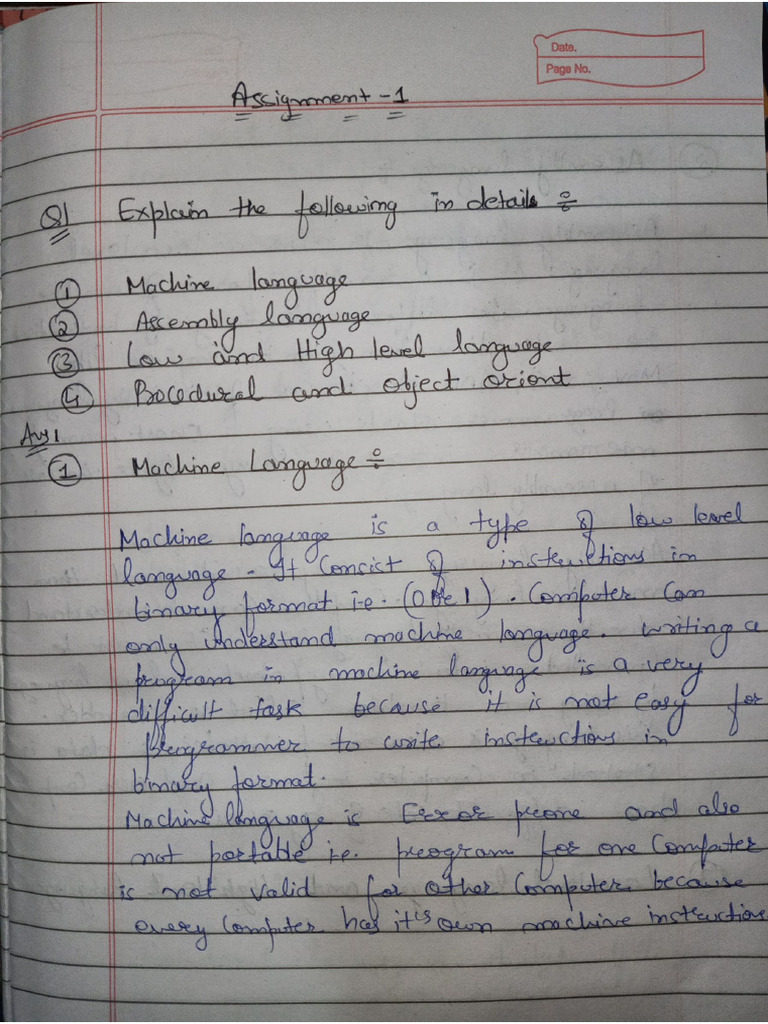 Date.
Page No.
Assignment - 1
Q1 Explain the following in details ÷
1 Machine language
2 Assembly language
3 Low and High level language
4 Procedural and object orient
Ans 1
1 Machine Language ÷
Machine language is a type of low level
language. It consist of instructions in
binary format i.e. (0 or 1). Computer can
only understand machine language. Writing a
program in machine language is a very
difficult task because it is not easy for
programmer to write instructions in
binary format.
Machine language is Error prone and also
not portable i.e. program for one Computer
is not valid for other Computer because
every Computer has it's own machine instructions